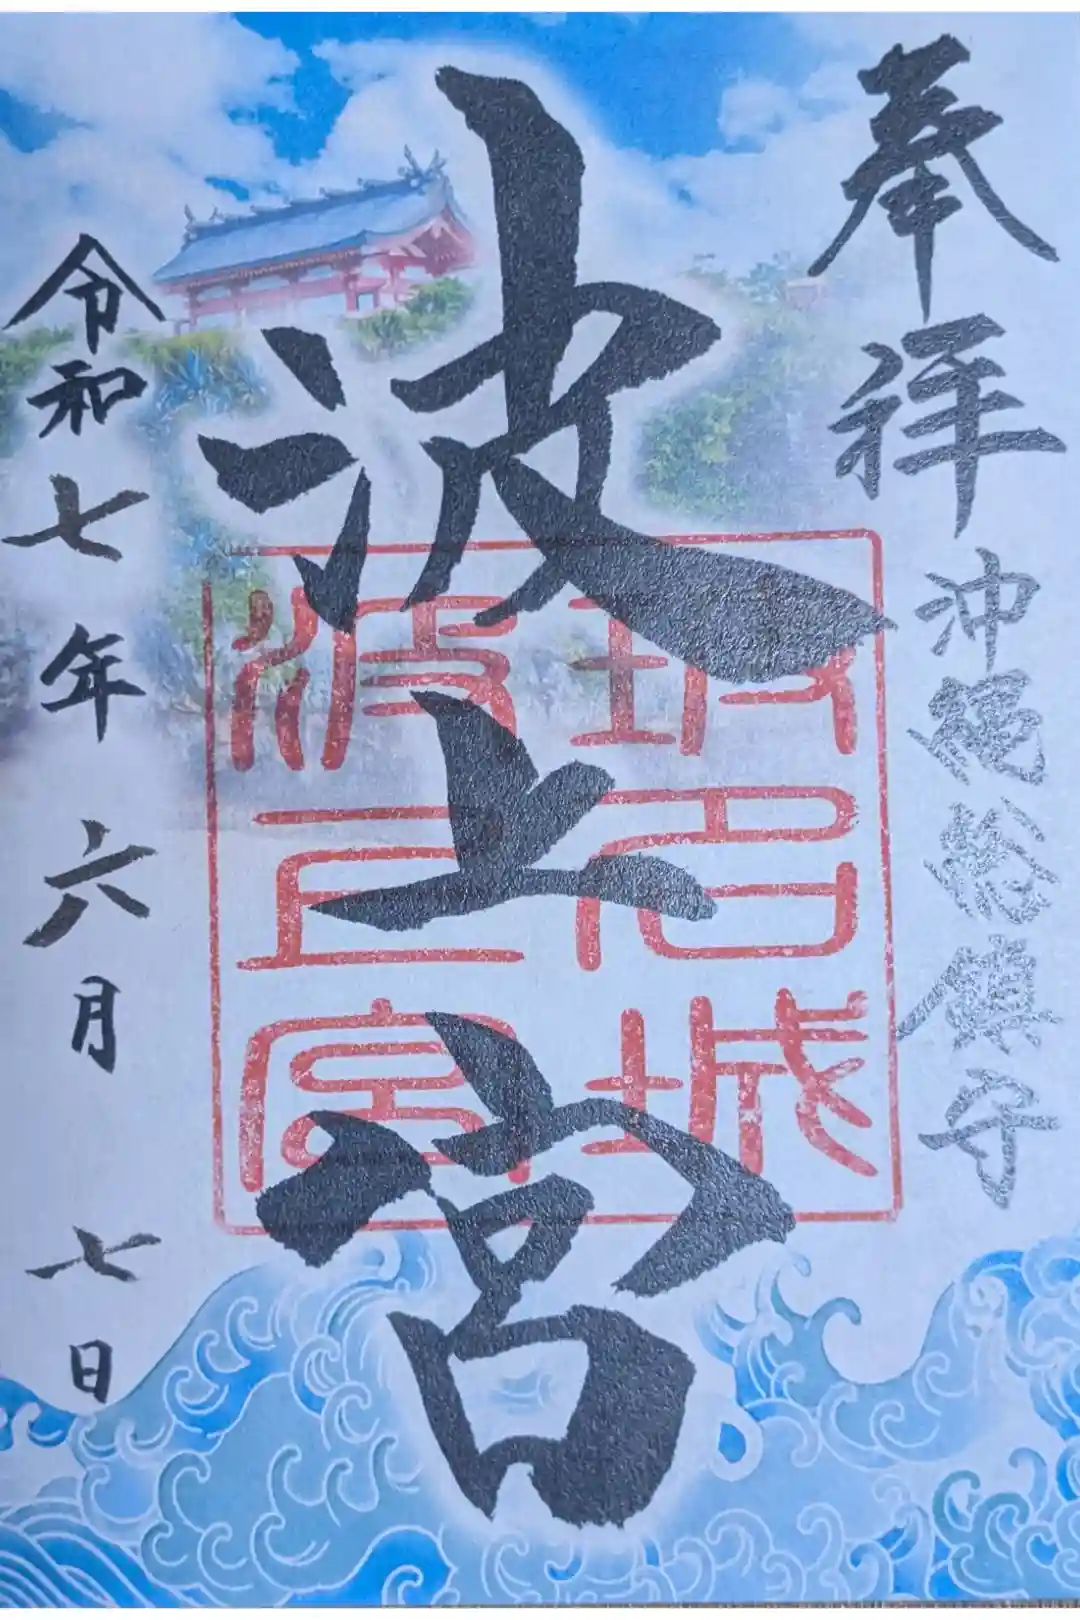 奉拝
沖縄総鎮守
波上宮
令和七年六月七日
波上宮